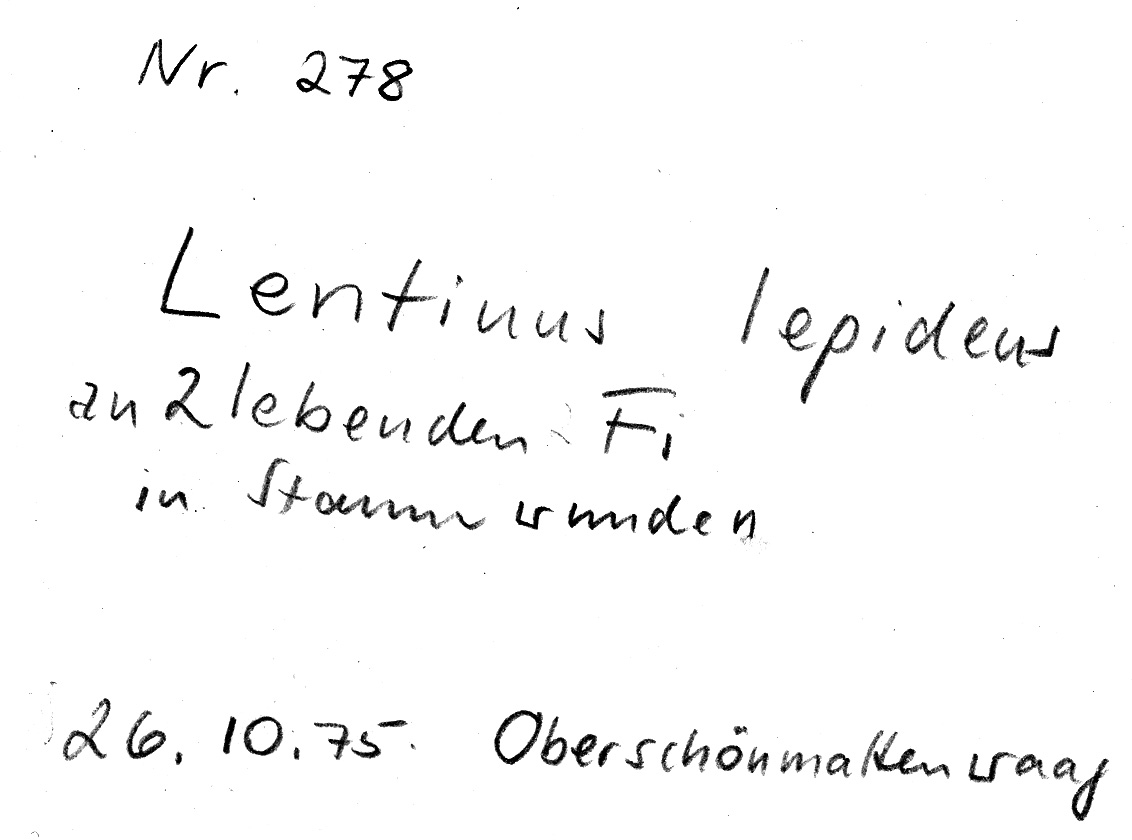 Nr. 278
Lentinus lepideus
an 2 lebenden Fi
in Stammwunden
26.10.75. Oberschönmattenwaag